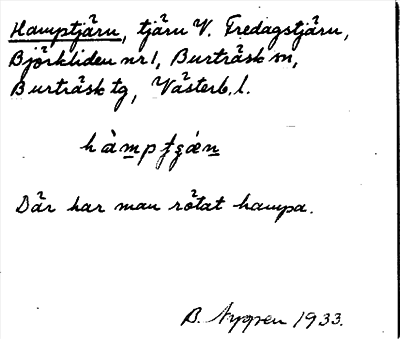 Hamptjärn, tjärn V. Fredagstjärn,
Björkliden nr 1, Burträsk sn,
Burträsk tg, Västerb. l.
Där har man rötat hampa.
B. Nygren 1933.